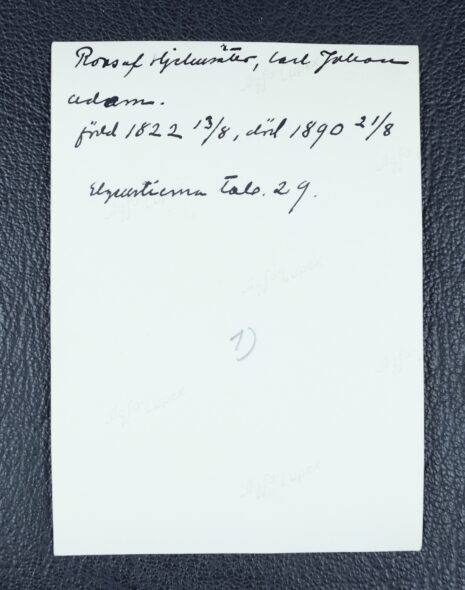 Roos af Hjelmsäter, Carl Johan
Adam.
född 1822 13/8, död 1890 21/8
Elgenstierna Tab. 29.
1)